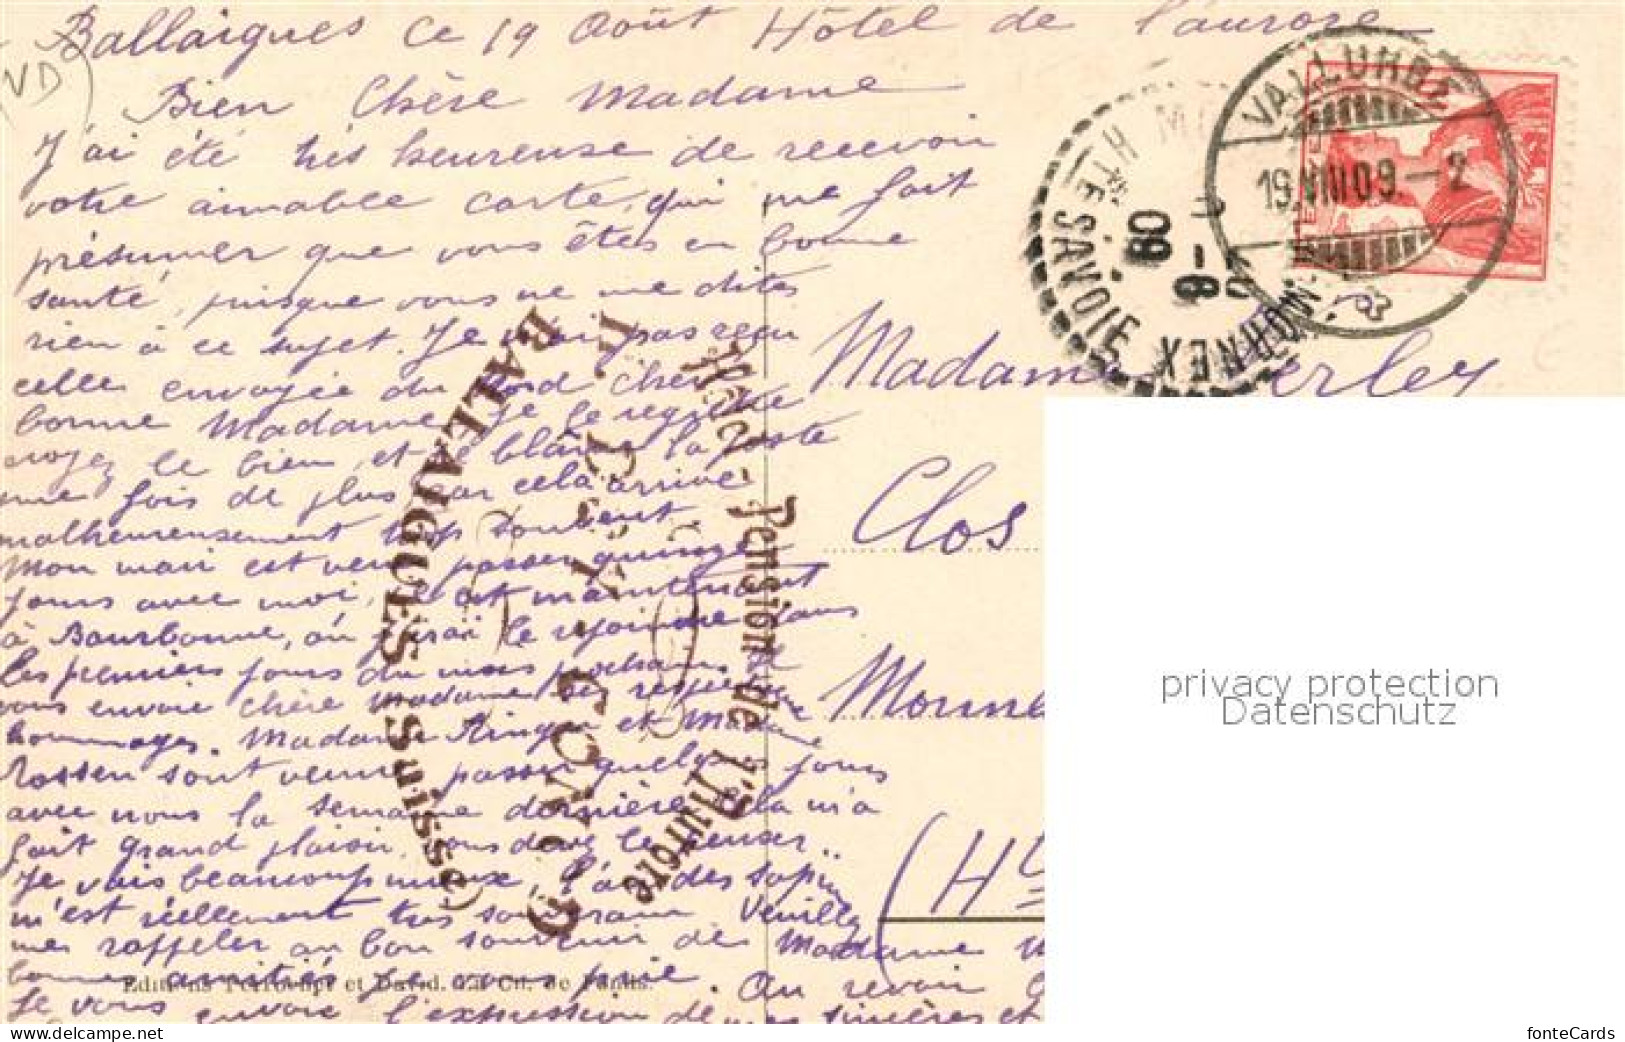 Ballaigues ce 19 Août Hôtel de l'aurore
Bien Chère Madame
J'ai été très heureuse de recevoir
votre aimable carte, qui me fait
présumer que vous êtes en bonne
santé, puisque vous ne me dites
rien à ce sujet. Je n'ai pas reçu
celle envoyée du Nord Chère
bonne Madame, je le regrette
croyez le bien, et je blâme la poste
une fois de plus car cela arrive
malheureusement trop souvent
Mon mari est venu passer quinze
jours avec moi, il est maintenant
à Bourbonne, où j'irai le rejoindre dans
les premiers jours du mois prochain. Il
vous envoie chère Madame ses respectueux
hommages. Madame et Madame
Rossen sont venues passer quelques jours
avec nous la semaine dernière cela m'a
fait grand plaisir, vous devez le penser.
Je vais beaucoup mieux, l'air des sapins
m'est réellement très souverain Veuillez
me rappeler au bon souvenir de Madame
bonnes amitiés je vous prie. Au revoir
Je vous envoie l'expression de mes sincères et
Editions Perrochet et David. La Ch. de Fonds.
VALLORBE
19.VIII.09.-2
HTE SAVOIE
MORNEX
09
Madame erley
Clos
Monne
(Hte
Hôtel-Pension de l'Aurore
BALLAIGUES (Suisse)
privacy protection
Datenschutz
www.delcampe.net
fonteCards